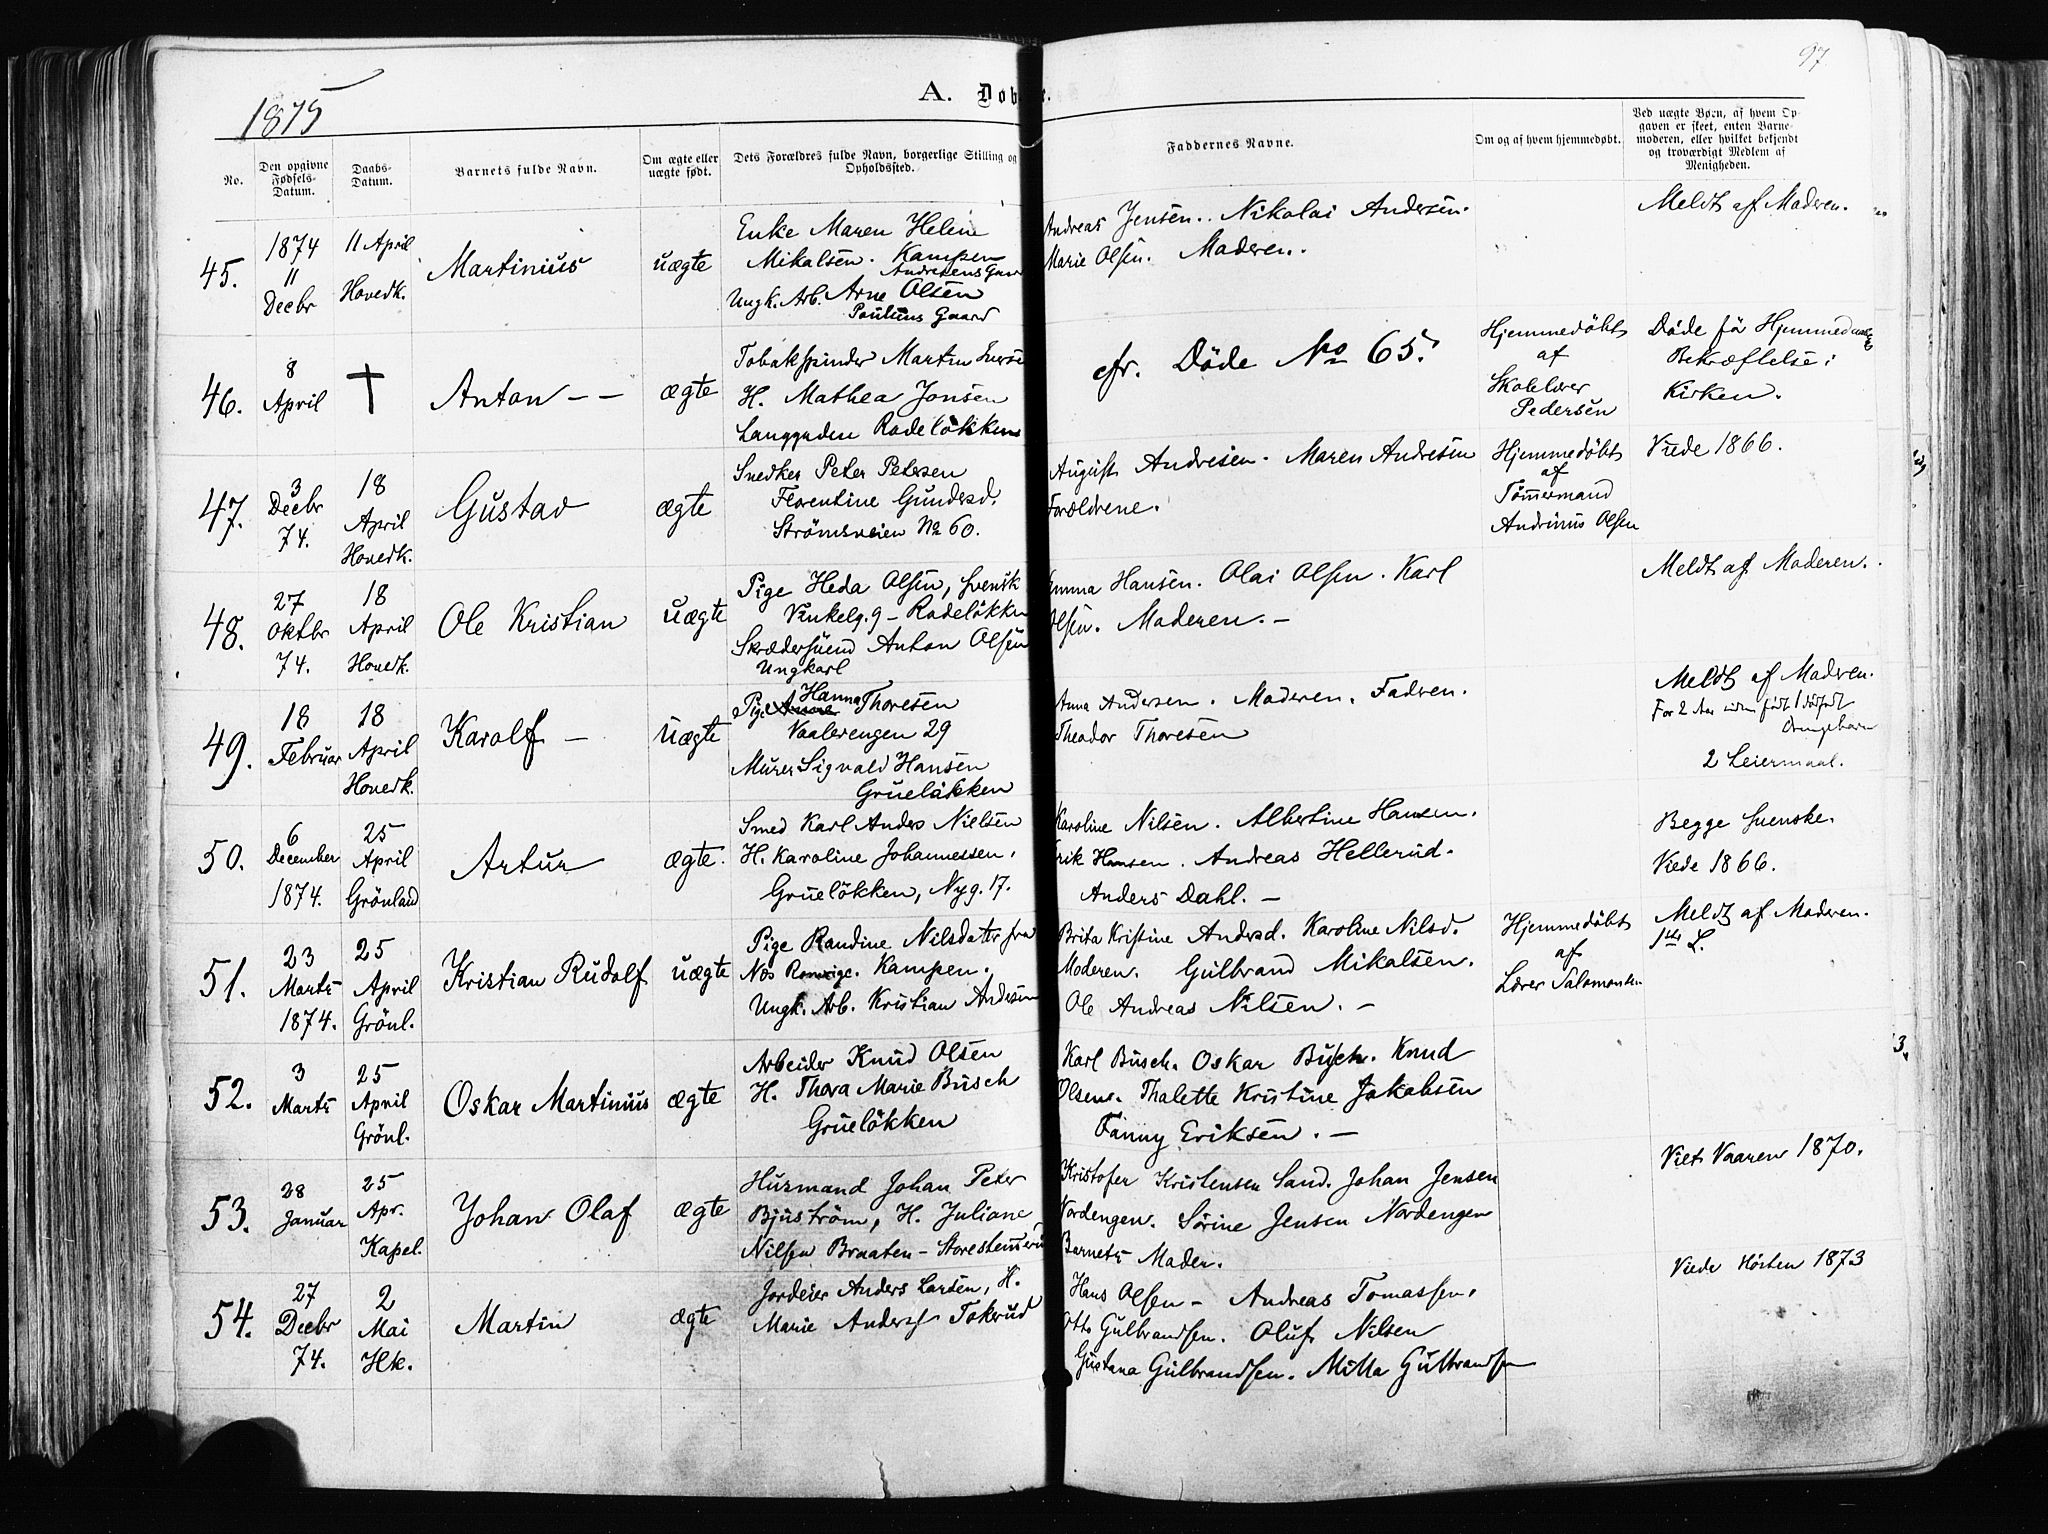 97
1875
A. Døbte.
No.
Den opgivne Fødsels-Datum.
Daabs-Datum.
Barnets fulde Navn.
Om ægte eller uægte født.
Dets Forældres fulde Navn, borgerlige Stilling og Opholdssted.
Faddernes Navne.
Om og af hvem hjemmedøbt.
Ved uægte Børn, af hvem Op-
gaven er skeet, enten Barne-
moderen, eller hvilket bekjendt
og troværdigt Medlem af
Menigheden.
45.
1874
11
Decbr
11 April
Hovedk.
Martinius
uægte
Enke Maren Helene
Mikalsen. Kampen
Andresens Gaard
Ungk. Arb. Arne Olsen
Poulsens Gaard
Andreas Jensen. Nikolai Andersen.
Marie Olsen. Moderen.
Meldt af Moderen.
46.
8
April
†
Anton --
ægte
Tobakspinder Martin
H. Mathea Jonsen
Langgaden Rodeløkken
cfr. Døde No 65.
Hjemmedøbt
af
Skolelærer
Pedersen
Døde før Hjemmedaabs
Bekræftelse i
Kirken.
47.
3
Decbr
74.
18
April
Hovedk.
Gustav
ægte
Snedker Peter Petersen
Florentine Gundersd.
Strømsveien No 60.
August Andresen. Maren Andresen
Forældrene.
Hjemmedøbt
af
Tømmermand
Andrinus Olsen
Viede 1866.
48.
27
Oktbr
74.
18
April
Hovedk.
Ole Kristian
uægte
Pige Heda Olsen, svensk
Vinkelg. 9 – Rodeløkken
Skrædersvend Anton Olsen
Ungkarl
Emma Hansen. Olai Olsen. Karl
Olsen. Moderen. –
Meldt af Moderen.
49.
18
Februar
18
April
Hovedk.
Karolf –
uægte
Hanna
Pige Thoresen
Vaalerengen 29
Murer Sigvald Hansen
Grueløkken
Anna Andersen. Moderen. Fadren.
Theodor Thoresen
Meldt af Moderen.
For 2 Aar siden født 1 dødfødt
Drengebarn
2 Leiermaal.
50.
6
December
1874.
25
April
Grönland
Artur
ægte.
Smed Karl Anders Nielsen
H. Karoline Johannessen.
Grueløkken, Nyg. 17.
Karoline Nilsen. Albertine Hansen.
Erik Hansen. Andreas Hellerud.
Anders Dahl. –
Begge svenske.
Viede 1866.
51.
23
Marts
1874.
25
April
Grönl.
Kristian Rudolf
uægte
Pige Randine Nilsdatter fra
Næs Romerige. Kampen.
Ungk. Arb. Kristian Andersen
Brita Kristine Andersd. Karoline Nilsd.
Moderen. Gulbrand Mikalsen.
Ole Andreas Nilsen. –
Hjemmedøbt
af
Lærer Salomonsen
Meldt af Moderen.
1ste L.
52.
3
Marts
25
April
Grönl.
Oskar Martinius
ægte
Arbeider Knud Olsen
H. Thora Marie Busch
Grueløkken
Karl Busch. Oskar Busch. Knud
Olsen. Thalette Kristine Jakobsen
Fanny Eriksen. –
53.
28
Januar
25
Apr.
Kapel.
Johan Olaf
ægte
Husmand Johan Peter
Bjuström, H. Juliane
Nilsen Braaten – Storestensrud
Kristofer Kristensen Sand. Johan Jensen
Nordengen. Sörine Jensen Nordengen
Barnets Moder.
Viet Vaaren 1870.
54.
27
Decbr
74.
2
Mai
Hk.
Martin
ægte
Jordeier Anders Larsen, H.
Marie Anders. Tokerud
Hans Olsen – Andreas Tomassen.
Otto Gulbrandsen. Oluf Nilsen
Gustava Gulbrandsen. Milla Gulbrandsen
Viede Høsten 1873
3.